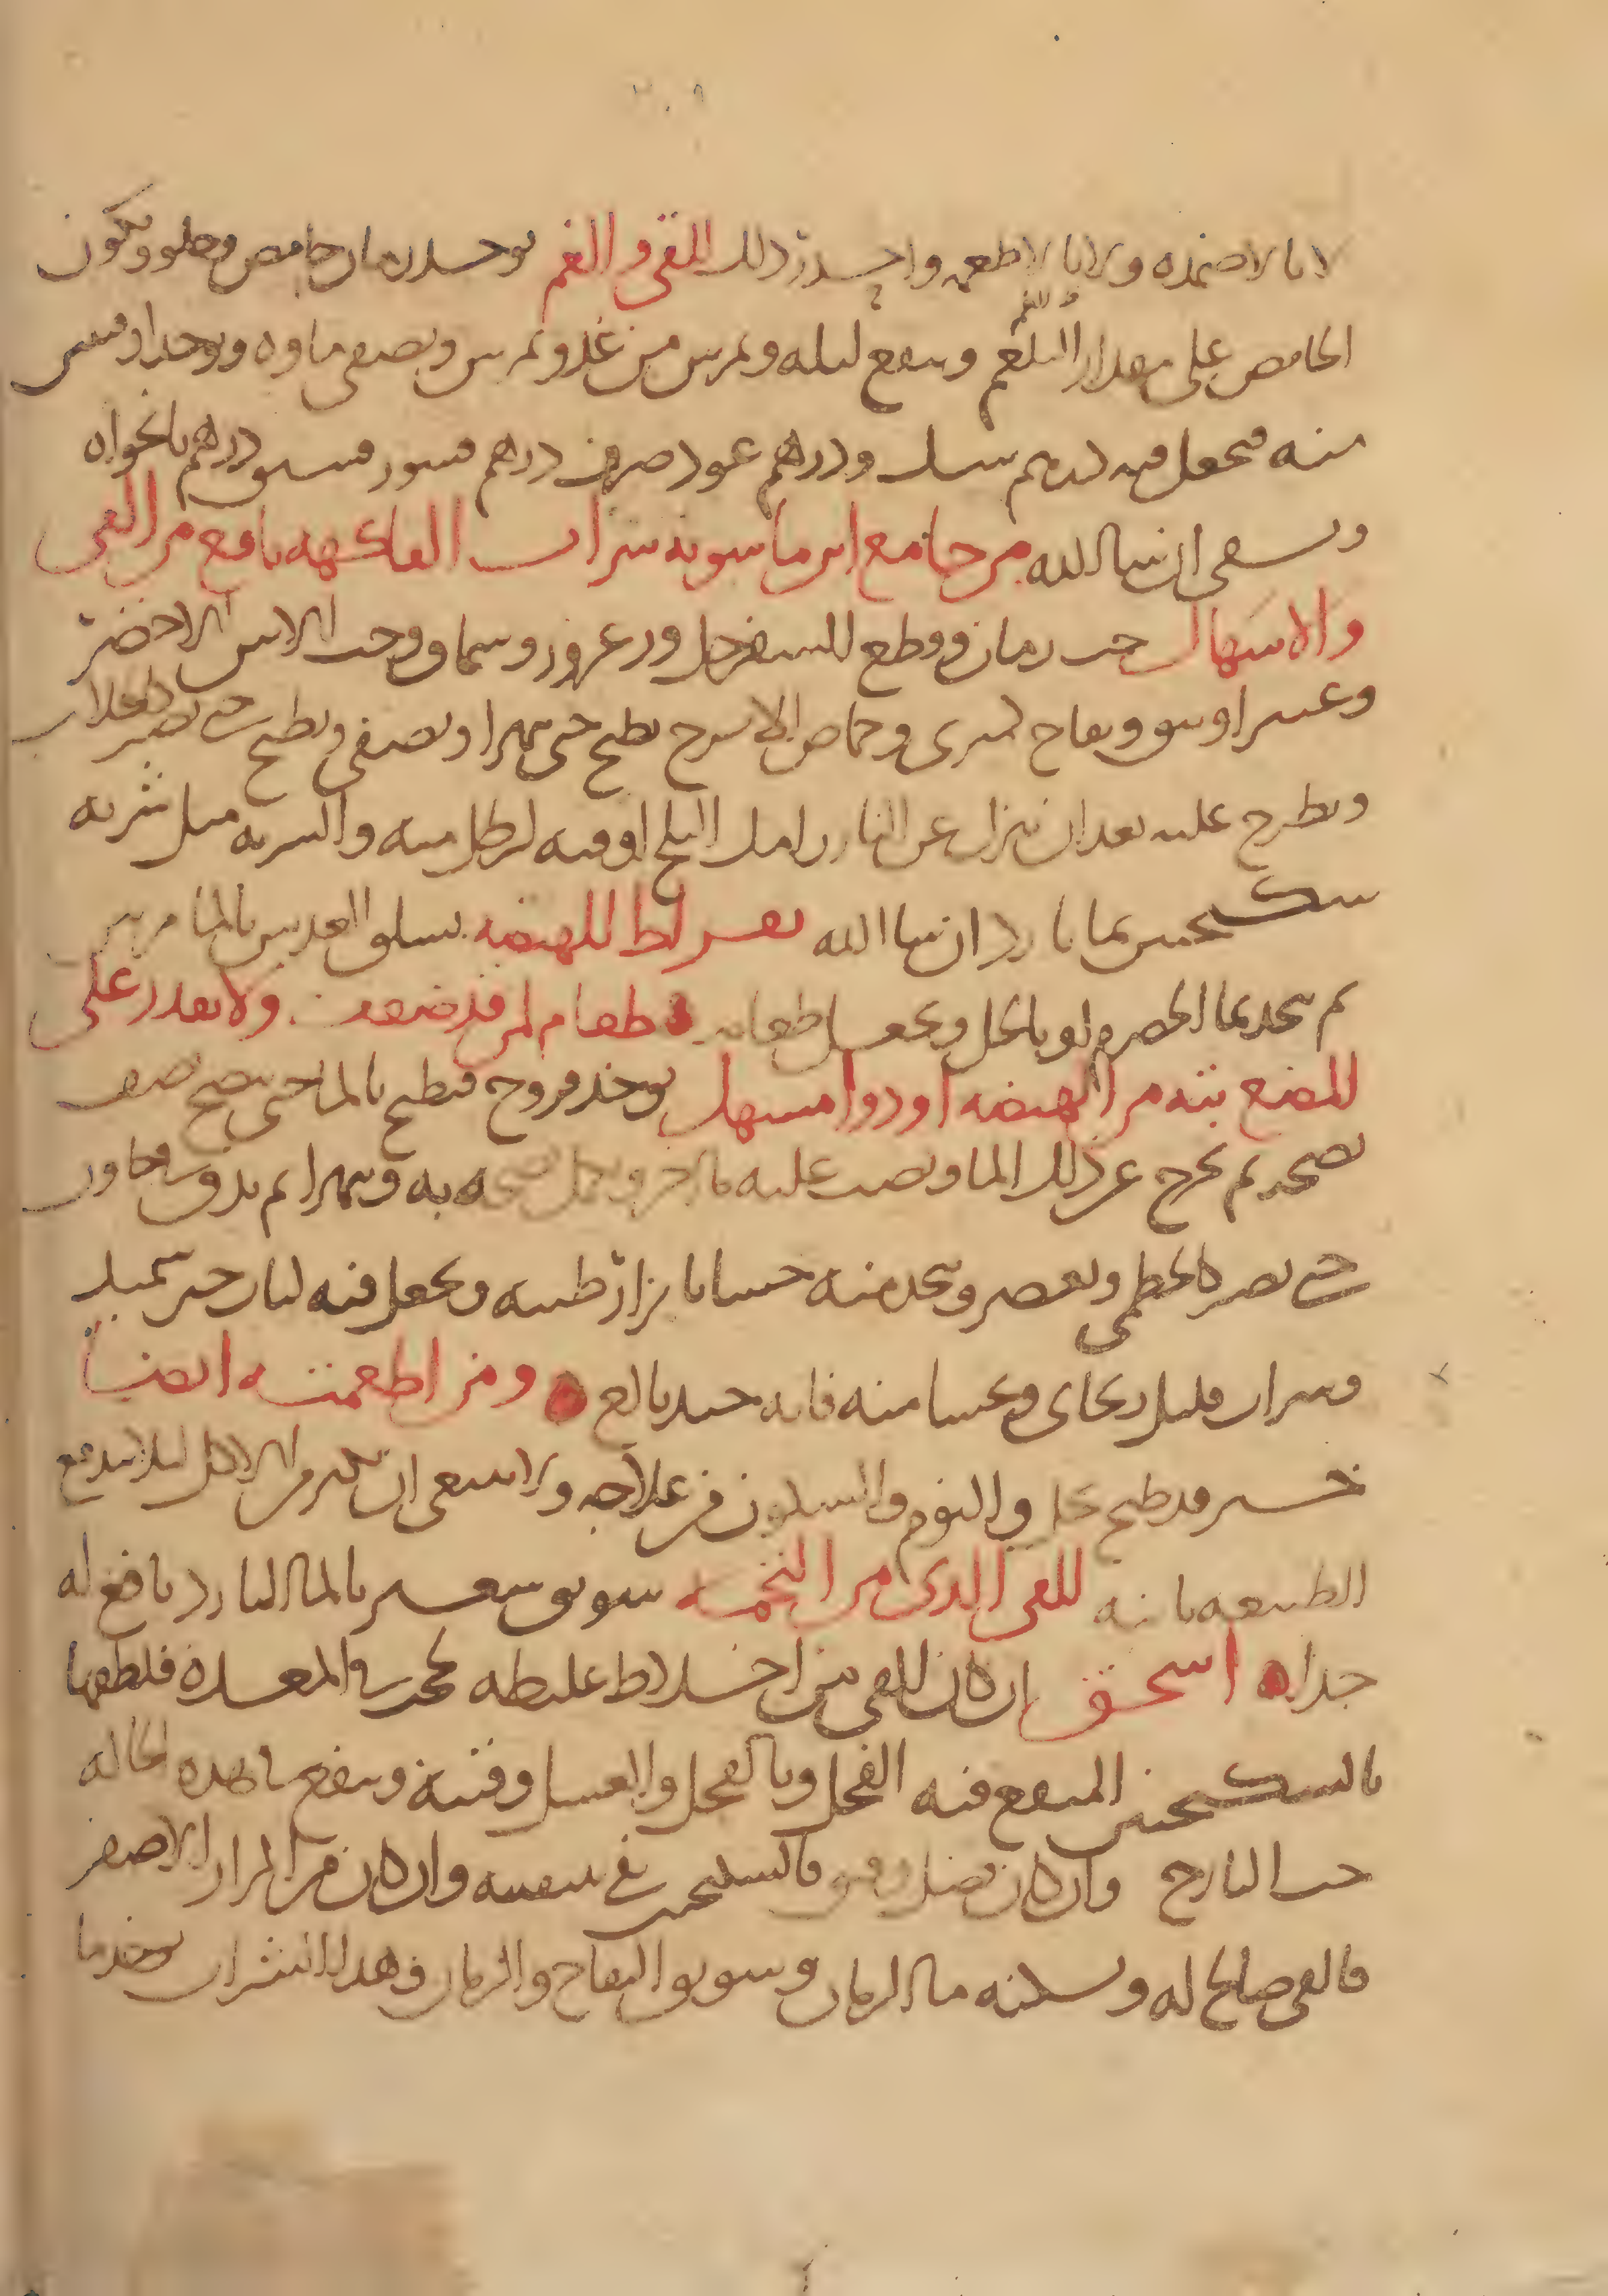 لا بالاضمده ولا بالاطعمه واحدر ذلك للقى والغم يوخذ رمان حامض وحلو ويكون
الحامض على مقدار البلغم وينقع ليله ويمرس من غد ويمرس ويصفى ماوه ويوخذ اوقيتين
منه فيجعل فيه درهم سك ودرهم عود صرف درهم قشور فستق درهم نانخواه
ويسقى ان شا الله من جامع ابن ماسويه شراب الفاكهه نافع من القى
والاسهال حب رمان وقطع السفرجل وزعرور وسماق وحب الاس الاخضر
وغبيرا ونبق وتفاح كمثرى وحماض الاترج يطبخ حتى يتهرا ويصفى ويطبخ حتى يصير كالجلاب
ويطرح عليه بعد ان ينزل عن النار رامك البلح اوقيه لرطل منه والشربه مثل شربه
سكنجبين بما بارد ان شا الله بقراط للهيضه يسلق العدس بالما مرتين
ثم يتخذ بما الحصرم او بالخل ويجعل طعامه طعام لمن قد ضعف ولا يقدر على
المضغ بته من الهيضه او دوا مسهل يوخذ فروج فيطبخ بالما حتى ينضج نصف
نضجه ثم يخرج عن ذلك الما ويصب عليه ما اخر ويكمل نضجه به ويتهرا ثم يدق في هاون
حتى يصير كالخطمى ويعصر ويتخذ منه حسا بابزار طيبه ويجعل فيه لباب خبز سميد
وشراب قليل ريحانى ويحسا منه فانه جيد بالغ ومن اطعمته ايضا
خس قد طبخ بخل والنوم والسكون من علاجه ولا ينبغى ان يكثر من الاكل ليلا يندفع
الطبيعه ثانيه للقى الذى من التخمه سويق شعير بالما البارد نافع له
جدا اسحق ان كان القى من اخلاط غليظه تحدث فى المعده فلطفها
بالسكنجبين المنقع فيه الفجل وبالفجل والعسل وقيئه وينفع من هذه الحاله
حب النارج وان كان بفضل رقيق فالسكنجبين فى تنقيته وان كان من المرار الاصفر
فالقى صالح له ويسكنه ما الرمان وسويق التفاح والرمان وهذا الشراب يوخذ ما